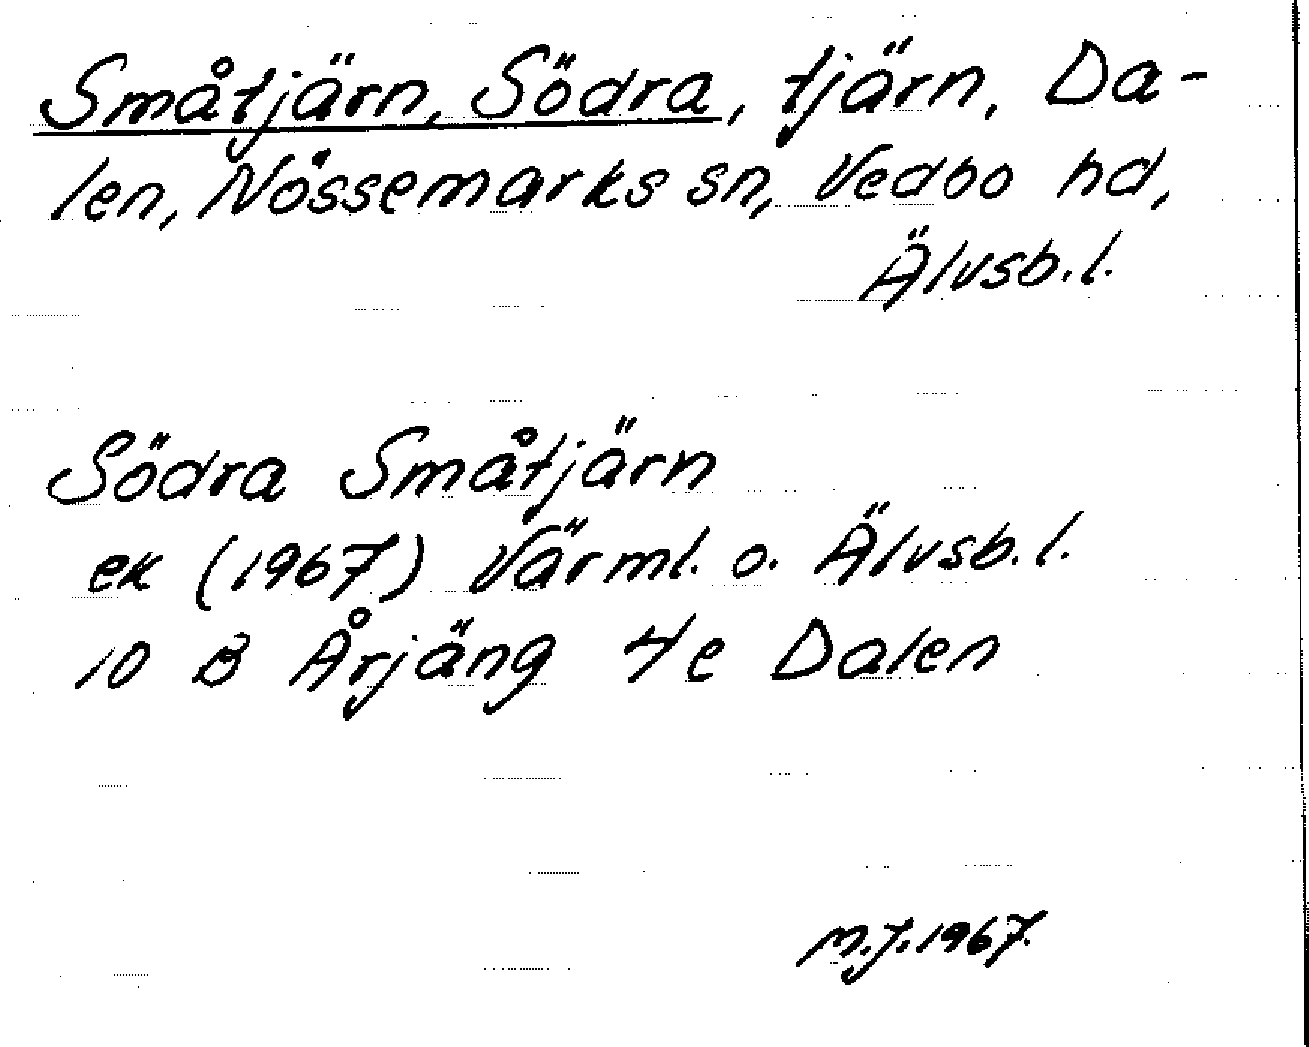 Småtjärn, Södra, tjärn, Da-
len, Nössemarks sn, Vedbo hd,
Älvsb.l.
Södra Småtjärn
ek (1967) Värml. o. Älvsb.l.
10 B Årjäng 4e Dalen
M.J. 1967.